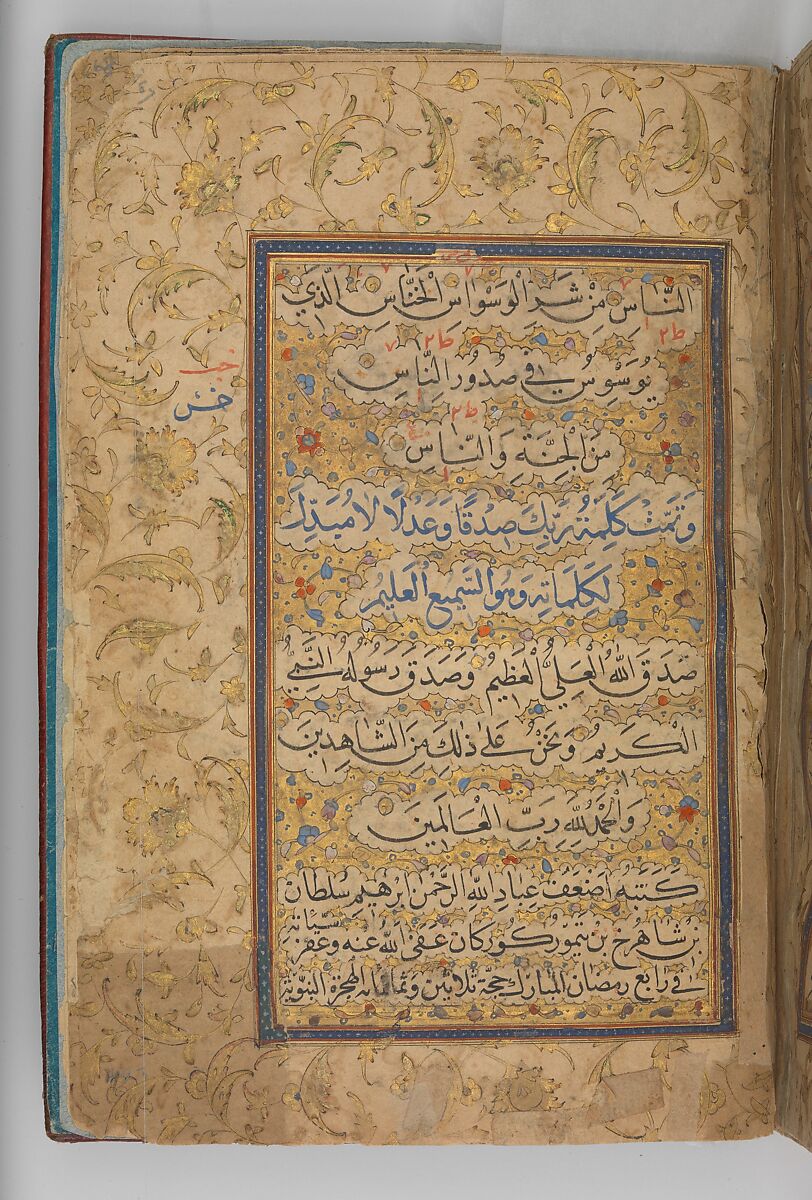 النَّاسِ مِنْ شَرِّ الْوَسْوَاسِ الْخَنَّاسِ الَّذِي
يُوَسْوِسُ فِي صُدُورِ النَّاسِ
مِنَ الْجِنَّةِ وَالنَّاسِ
وَتَمَّتْ كَلِمَةُ رَبِّكَ صِدْقًا وَعَدْلًا لَا مُبَدِّلَ
لِكَلِمَاتِهِ وَهُوَ السَّمِيعُ الْعَلِيمُ
صَدَقَ اللهُ الْعَلِيُّ الْعَظِيمُ وَصَدَقَ رَسُولُهُ النَّبِيُّ
الْكَرِيمُ وَنَحْنُ عَلَى ذَلِكَ مِنَ الشَّاهِدِينَ
وَالْحَمْدُ لِلَّهِ رَبِّ الْعَالَمِينَ
كَتَبَهُ اَضْعَفُ عِبَادِ اللهِ الرَّحْمٰنِ اِبْرٰهِيمُ سُلْطَان
بْنِ شَاهْرُخ بْنِ تَيْمُور كُورَكَان عَفَى اللهُ عَنْهُ وَغَفَرَ
فِي رَابِعِ رَمَضَانَ الْمُبَارَكِ حِجَّةَ ثَلَاثِينَ وَثَمَانِمِائَةِ الْهِجْرَةِ النَّبَوِيَّةِ